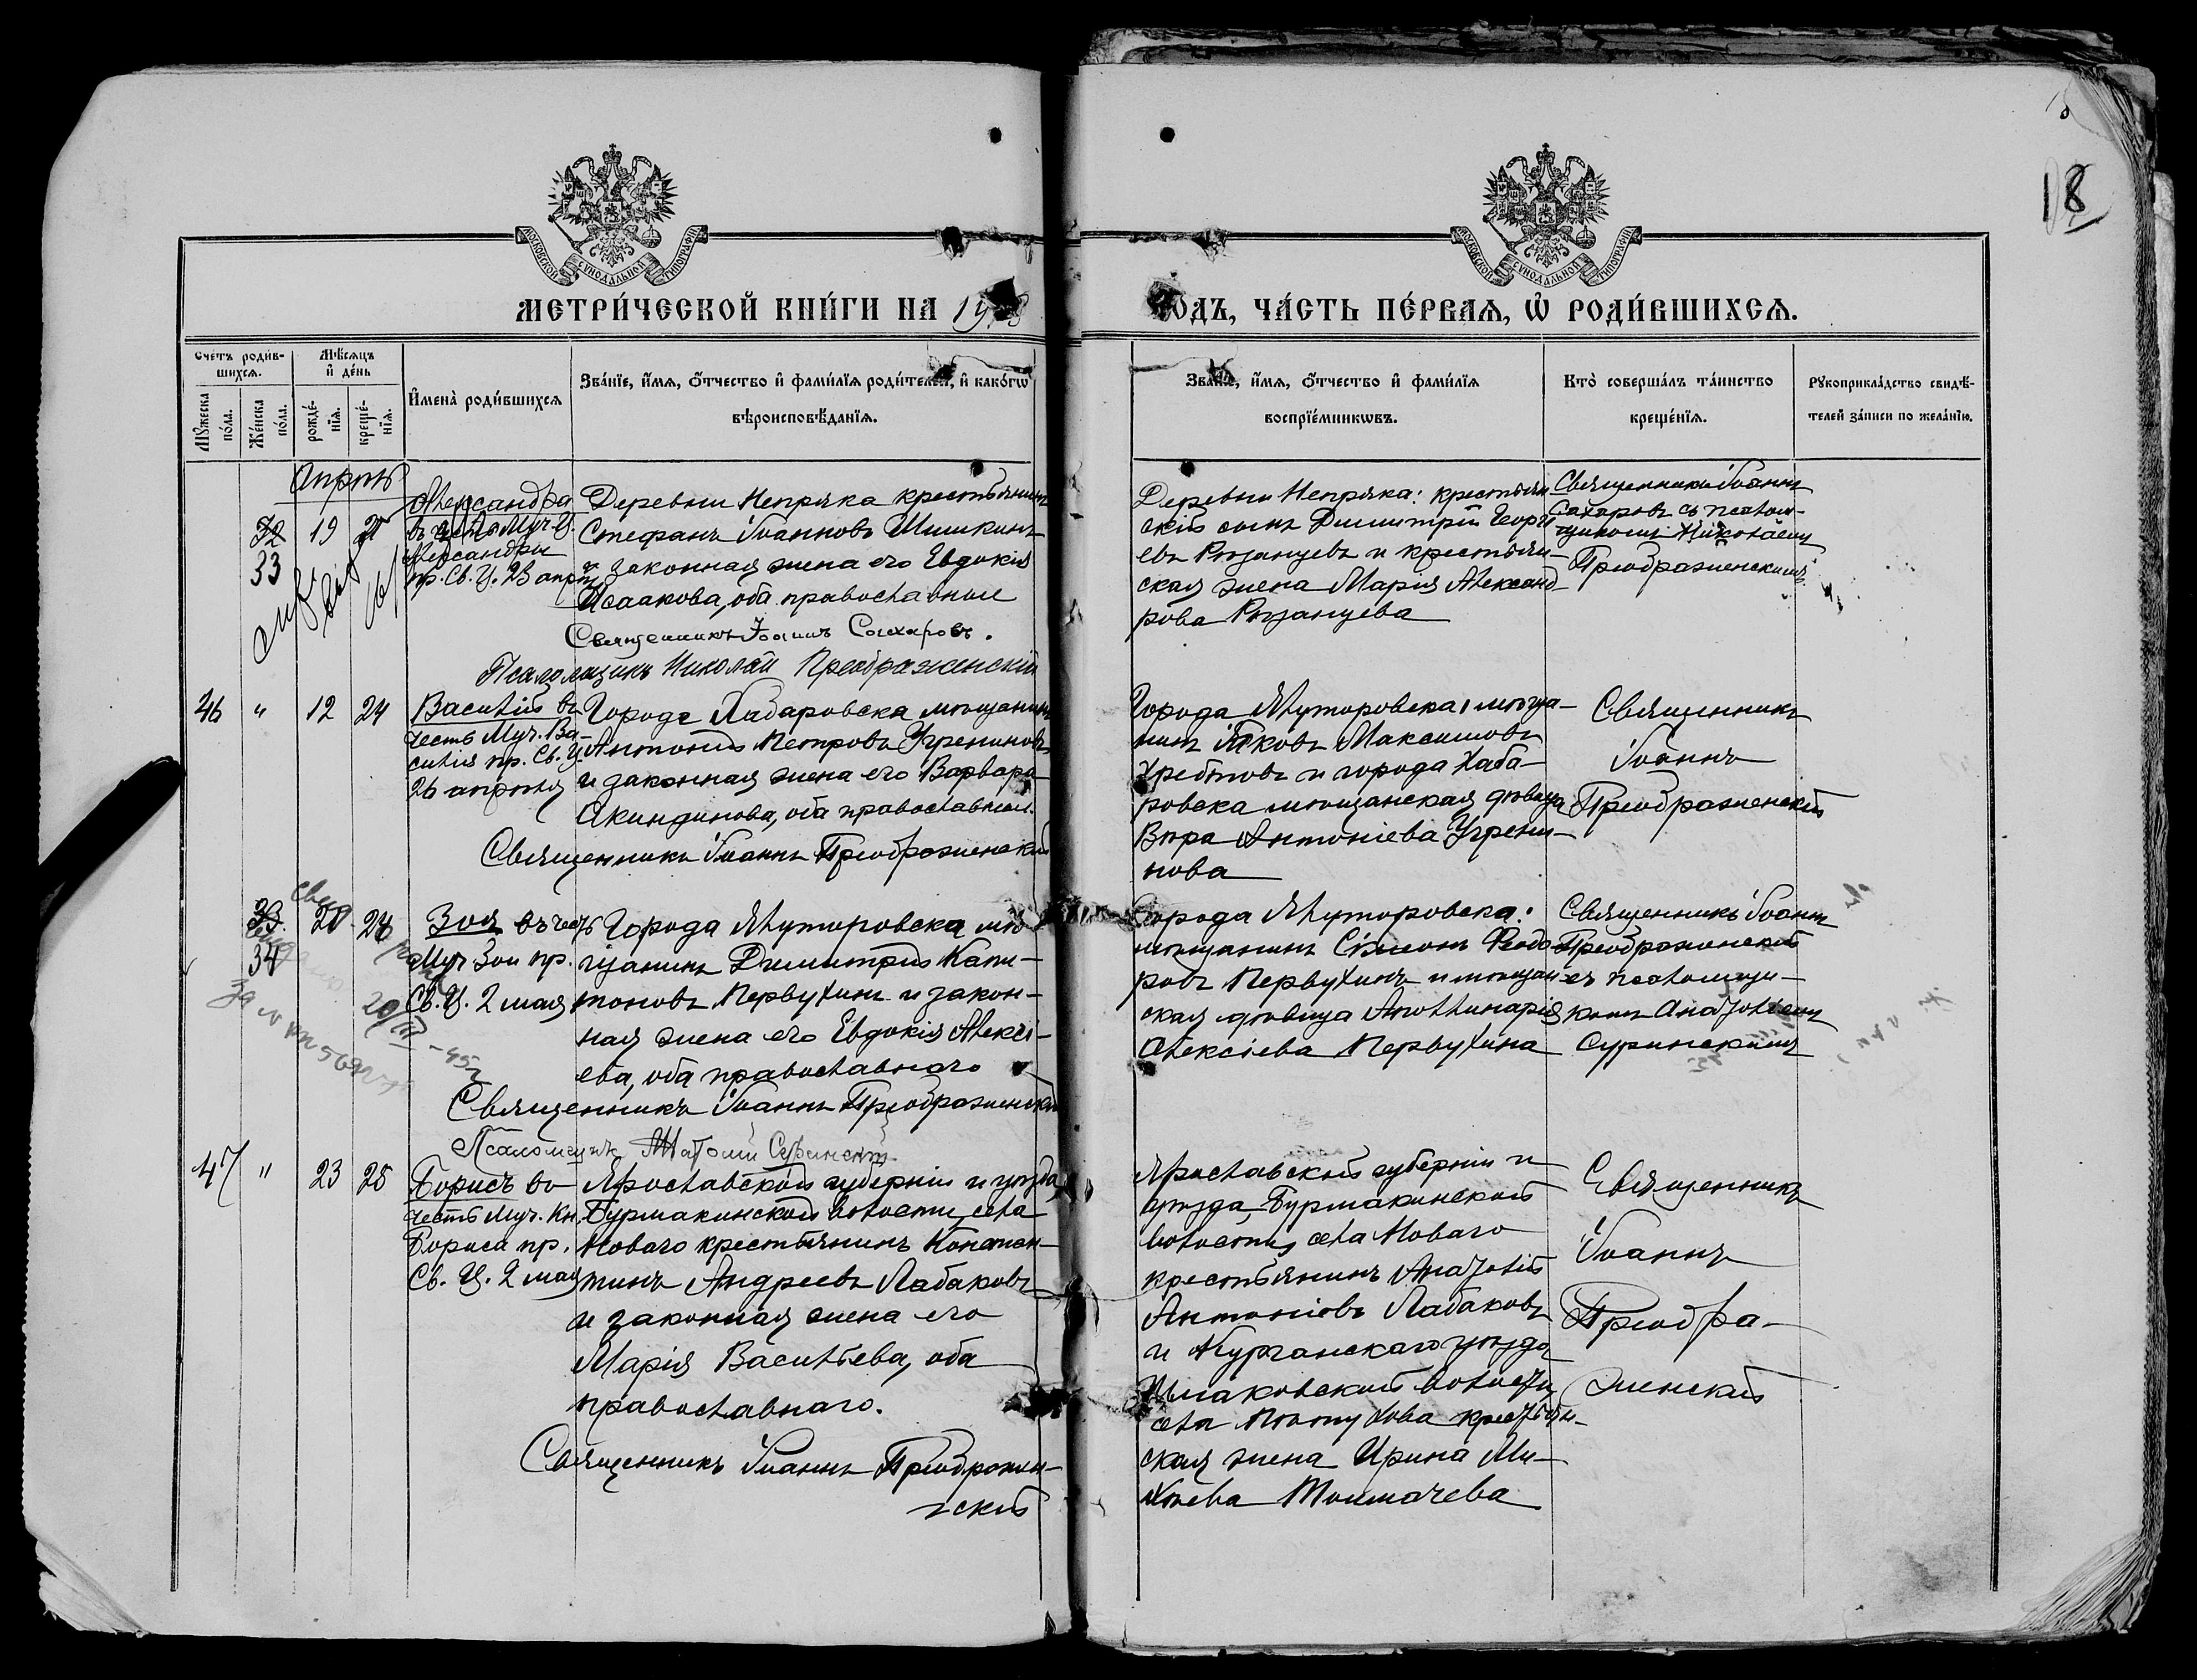 18
МОСКОВСКОЙ СѴНОДАЛЬНОЙ ТИПОГРАФІИ
МОСКОВСКОЙ СѴНОДАЛЬНОЙ ТИПОГРАФІИ
МЕТРИ́ЧЕСКОЙ КНИ́ГИ НА 19
ОДЪ, ЧА́СТЬ ПЕ́РВАЯ, Ѡ҆ РОДИ́ВШИХСЯ.
Счетъ роди́в-
шихся.
Мѣ́сяцъ
и҆ де́нь
Мꙋжеска
по́ла.
Же́нска
по́ла.
рожде́-
нїѧ.
креще́-
нїѧ.
И҆мена̀ роди́вшихся
Зва́нїе, и҆́мѧ, ѻ҆́тчество и҆ фами́лїѧ роди́телей, и҆ како́гѡ
вѣроисповѣ́данїѧ.
Зва́нїе, и҆́мѧ, ѻ҆́тчество и҆ фами́лїѧ
воспрїе́мникѡвъ.
Кто̀ соверша́лъ та́инство
креще́нїѧ.
Рꙋкоприкла́дство свидѣ́-
телей за́писи по жела́нїю.
Апрѣль
32
33
19
21
Александра
въ честь Муч. Ц.
Александры
пр. Св. Ц. 23 апрѣля
Деревни Непряка крестьянинъ
Стефанъ Іоанновъ Шишкинъ
и законная жена его Евдокія
Исаакова, оба православные
Священникъ Іоаннъ Сахаровъ.
Псаломщикъ Николай Преображенскій
Деревни Непряка: крестьян
скій сынъ Димитрій Георгі
евъ Рязанцевъ и крестьян-
ская жена Марія Александ-
рова Рязанцева
Священникъ Іоаннъ
Сахаровъ съ псалом-
щикомъ Николаемъ
Преображенскимъ
46 " 12 24
Василій въ
честь Муч. Ва-
силія пр. Св. Ц.
26 апрѣля
Города Хабаровска мѣщанинъ
Антоній Петровъ Угрениновъ
и законная жена его Варвара
Акиндинова, оба православные.
Священникъ Іоаннъ Преображенскій
Города Ялуторовска, мѣща-
нинъ Яковъ Максимовъ
Хребтовъ и города Хаба-
ровска мѣщанская дѣвица
Вѣра Антоніева Угрени-
нова
Священникъ
Іоаннъ
Преображенскій
33.
34
20 24
20/III-45г
Зоя въ честь
Муч Зои пр.
Св. Ц. 2 мая
Города Ялуторовска мѣ
щанинъ Димитрій Капи-
тоновъ Первухинъ и закон-
ная жена его Евдокія Алексі-
ева, оба православнаго
Священникъ Іоаннъ Преображенскій
Псаломщикъ Анатолій Суринскій
Города Ялуторовска:
мѣщанинъ Сѵмеонъ Ѳеодо
ровъ Первухинъ и мѣщан
ская дѣвица Аполлинарія
Алексіева Первухина
Священникъ Іоаннъ
Преображенскій
съ псаломщи-
комъ Анатоліемъ
Суринскимъ
47 " 23 25
Борисъ въ
честь Муч. Кн.
Бориса пр.
Св. Ц. 2 мая
Ярославской губерніи и уѣзда,
Бурмакинской волости, села
Новаго крестьянинъ Констан-
тинъ Андреевъ Лабаковъ
и законная жена его
Марія Васильева, оба
православнаго.
Священникъ Іоаннъ Преображен-
скій
Ярославской губерніи и
уѣзда, Бурмакинской
волости, села Новаго
крестьянинъ Анатолій
Антоніевъ Лабаковъ
и Курганскаго уѣзда
волости,
села крестьян-
ская жена Ирина Ми-
хѣева Толмачева
Священникъ
Іоаннъ
Преобра-
женскій